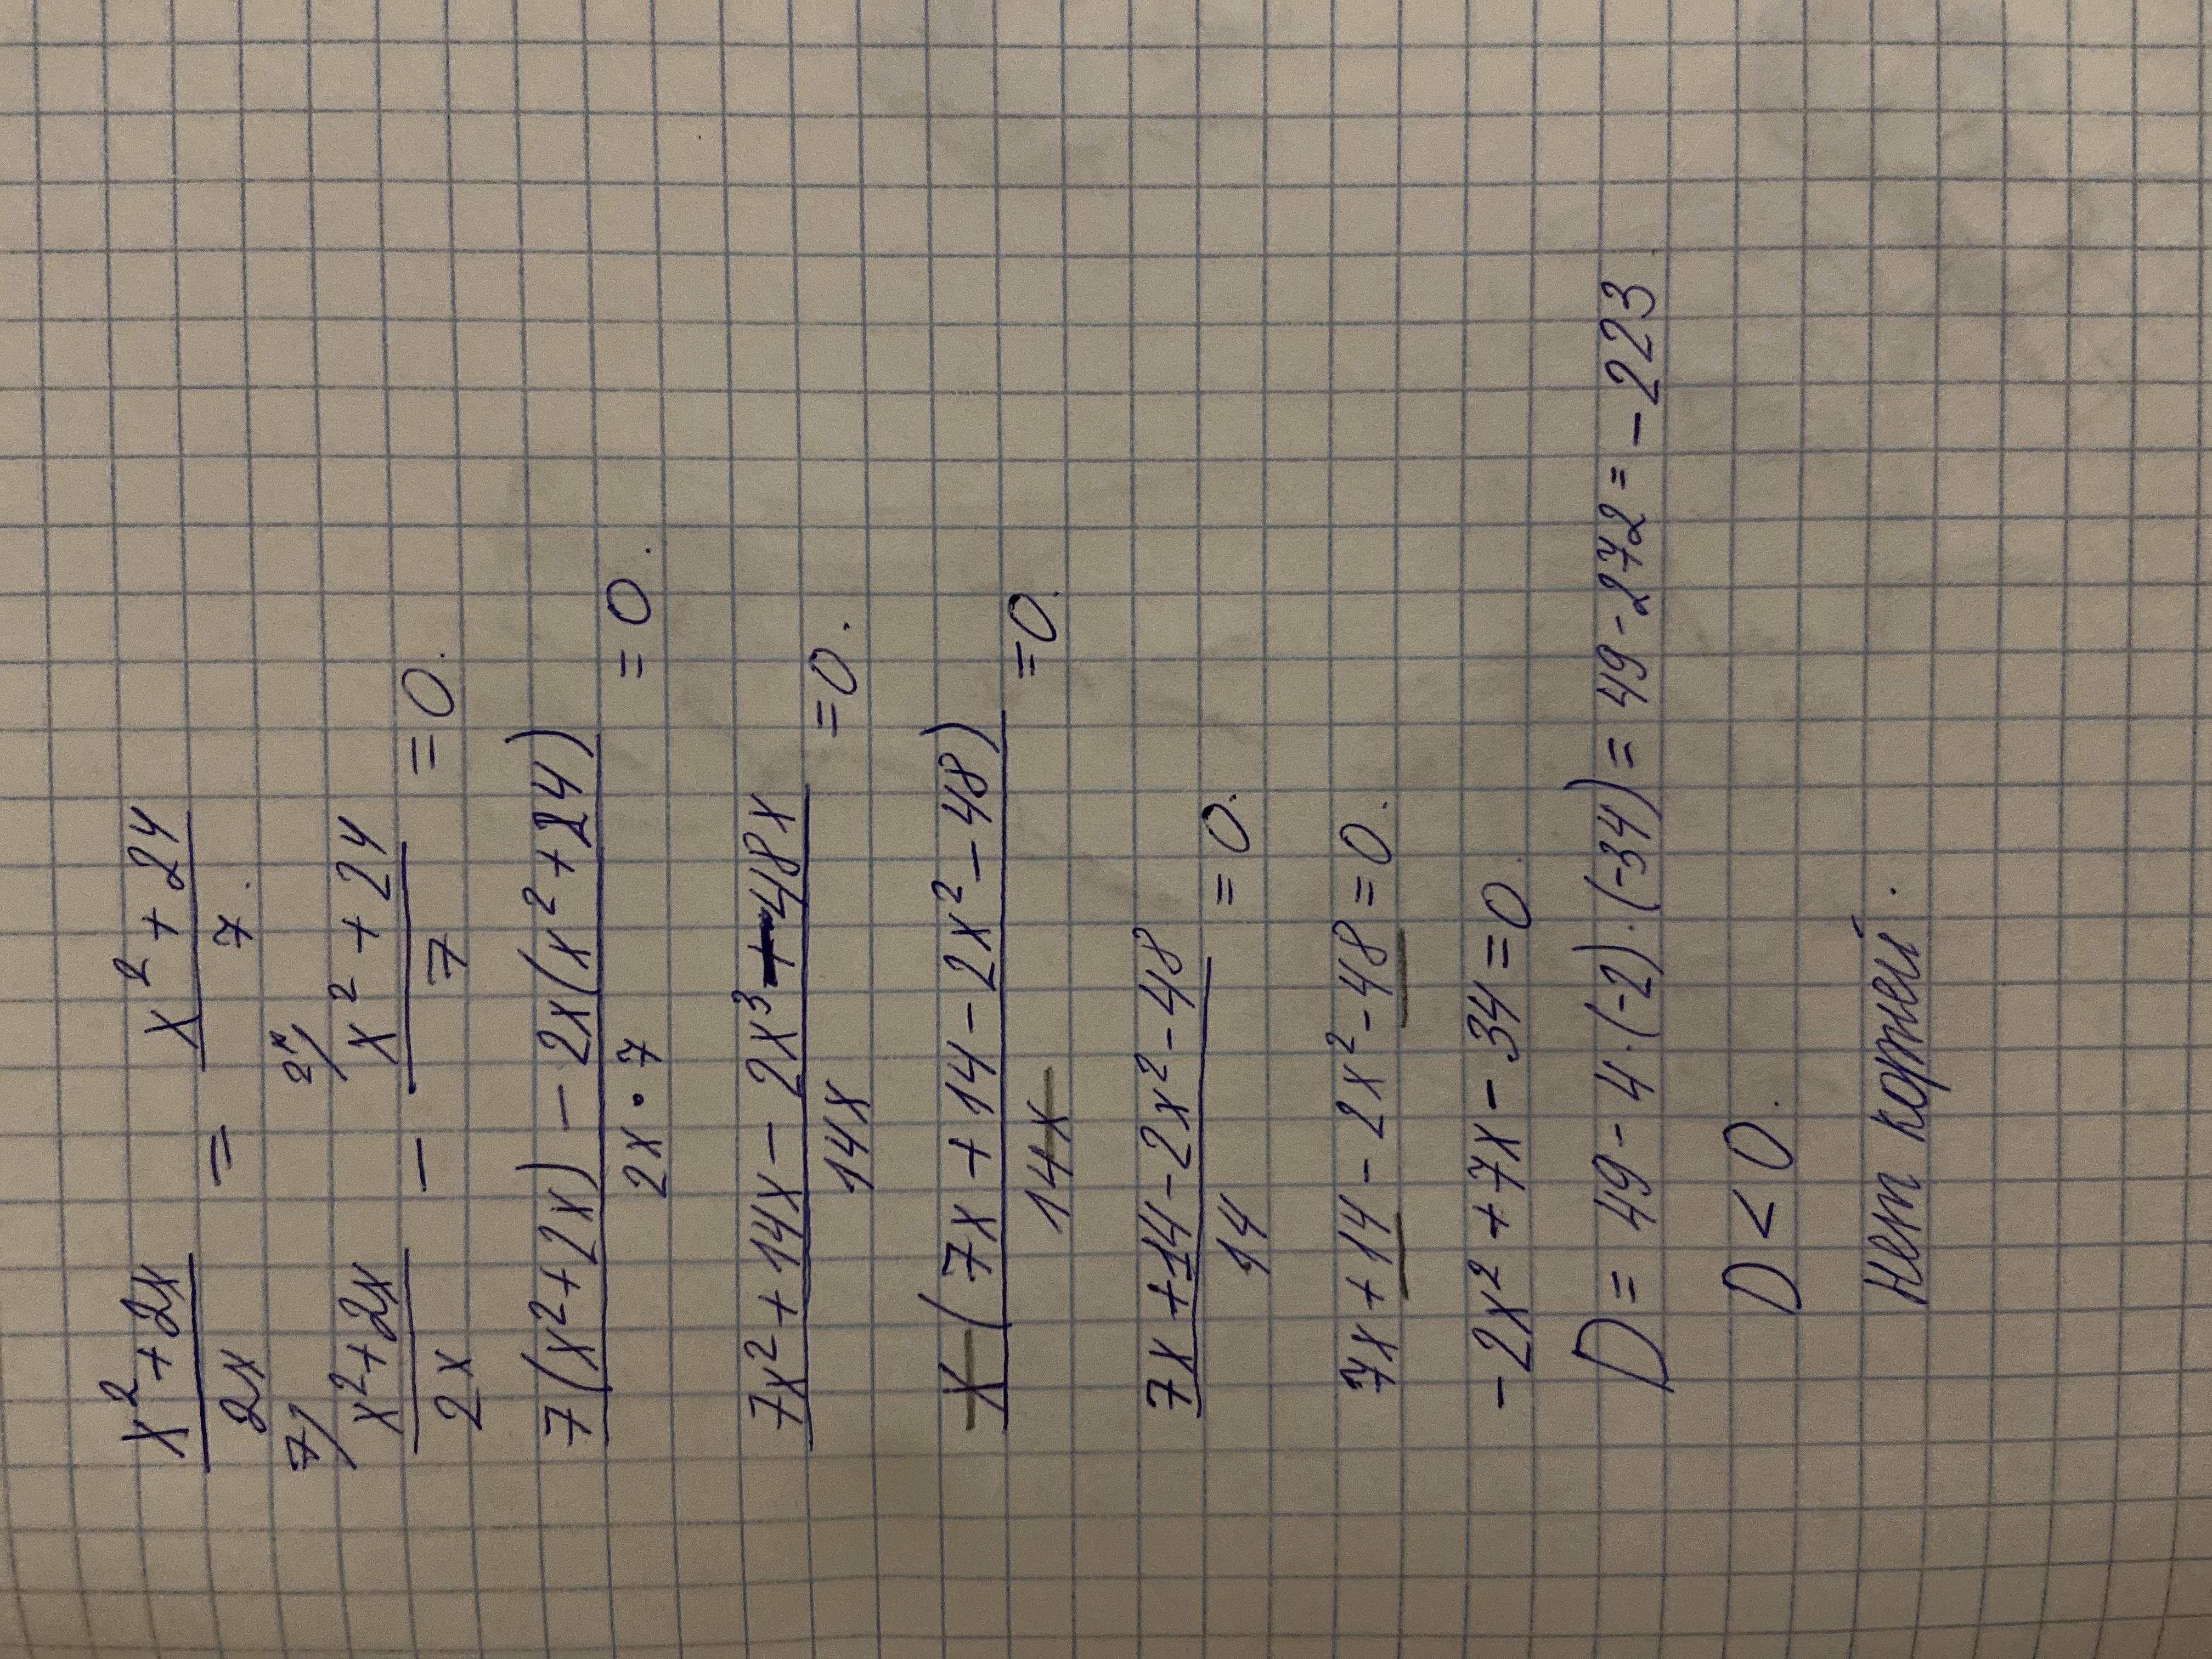 x² + 2x / 2x = x² + 24 / 7.
7) x² + 2x / 2x − 2x) x² + 24 / 7 = 0.
7(x² + 2x) − 2x(x² + 24) / 2x · 7 = 0.
7x² + 14x − 2x³ − 48x / 14x = 0.
x(7x + 14 − 2x² − 48) / 14x = 0.
7x + 14 − 2x² − 48 / 14 = 0.
7x + 14 − 2x² − 48 = 0.
−2x² + 7x − 34 = 0.
D = 49 − 4 · (−2) · (−34) = 49 − 272 = −223.
D < 0.
Нет корней.